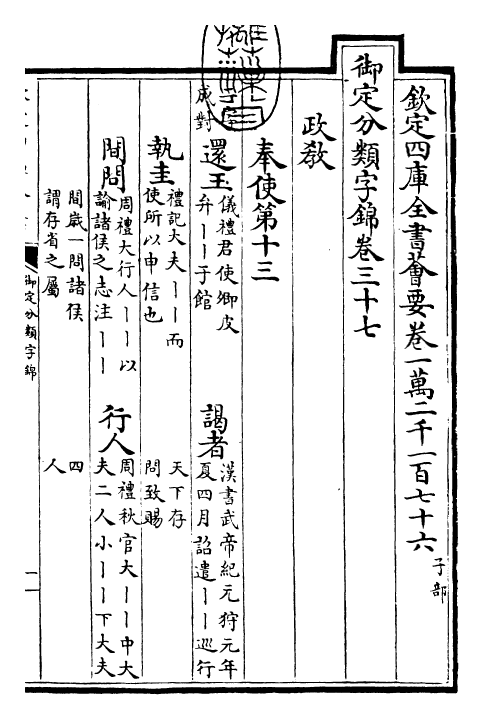 欽定四庫全書薈要卷一萬二千一百七十六 子部
御定分類字錦卷三十七
政教
奉使第十三
成對
還玉 儀禮君使卿皮弁｜｜于館
謁者 漢書武帝紀元狩元年夏四月詔遣｜｜巡行天下存問致賜
執圭 禮記大夫｜｜而使所以申信也
間問 周禮大行人｜｜以諭諸侯之志注｜｜間歲一問諸侯謂存省之屬
行人 周禮秋官大｜｜中大夫二人小｜｜下大夫四人
御定分類字錦
一